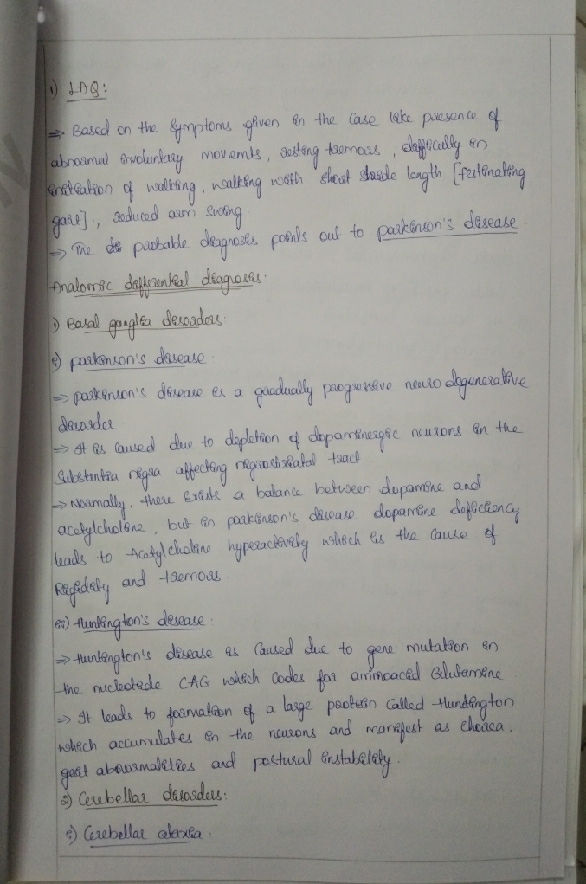 1) LAQ:
⇒ Based on the symptoms given in the case like presence of
abnormal involuntary movemts, resting tremors, difficulty in
initiation of walking, walking with short stride length [festinating
gait], reduced arm swing.
→ The probable diagnosis points out to parkinson's disease
Anatomic differential diagnosis:
1) Basal ganglia disorders:
i) parkinson's disease.
⇒ parkinson's disease is a gradually progressive neuro degenerative
disorder
⇒ It is caused due to depletion of dopaminergic neurons in the
substantia nigra affecting nigrostriatal tract
→ Normally, there exists a balance between dopamine and
acetylcholine, but in parkinson's disease dopamine deficiency
leads to Acetylcholine hyperactivity which is the cause of
Rigidity and tremors.
ii) Huntington's disease:
⇒ Huntington's disease is caused due to gene mutation in
the nucleotide CAG which codes for aminoacid Glutamine.
⇒ It leads to formation of a large protein called Huntington
which accumulates in the neurons and manifest as chorea.
gait abnormalities and postural instability.
2) Cerebellar disorders:
i) Cerebellar ataxia.